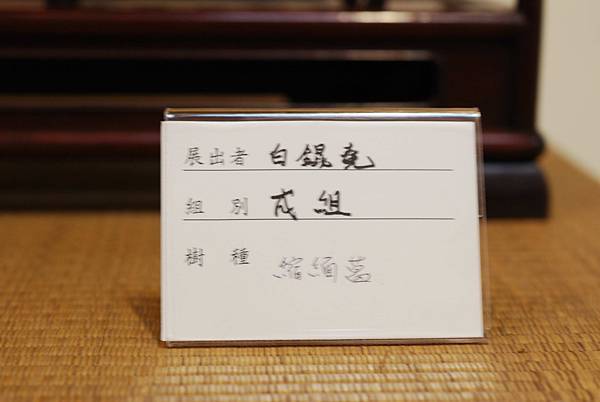 展出者 白錕堯
組別 成組
樹種 縮緬葛